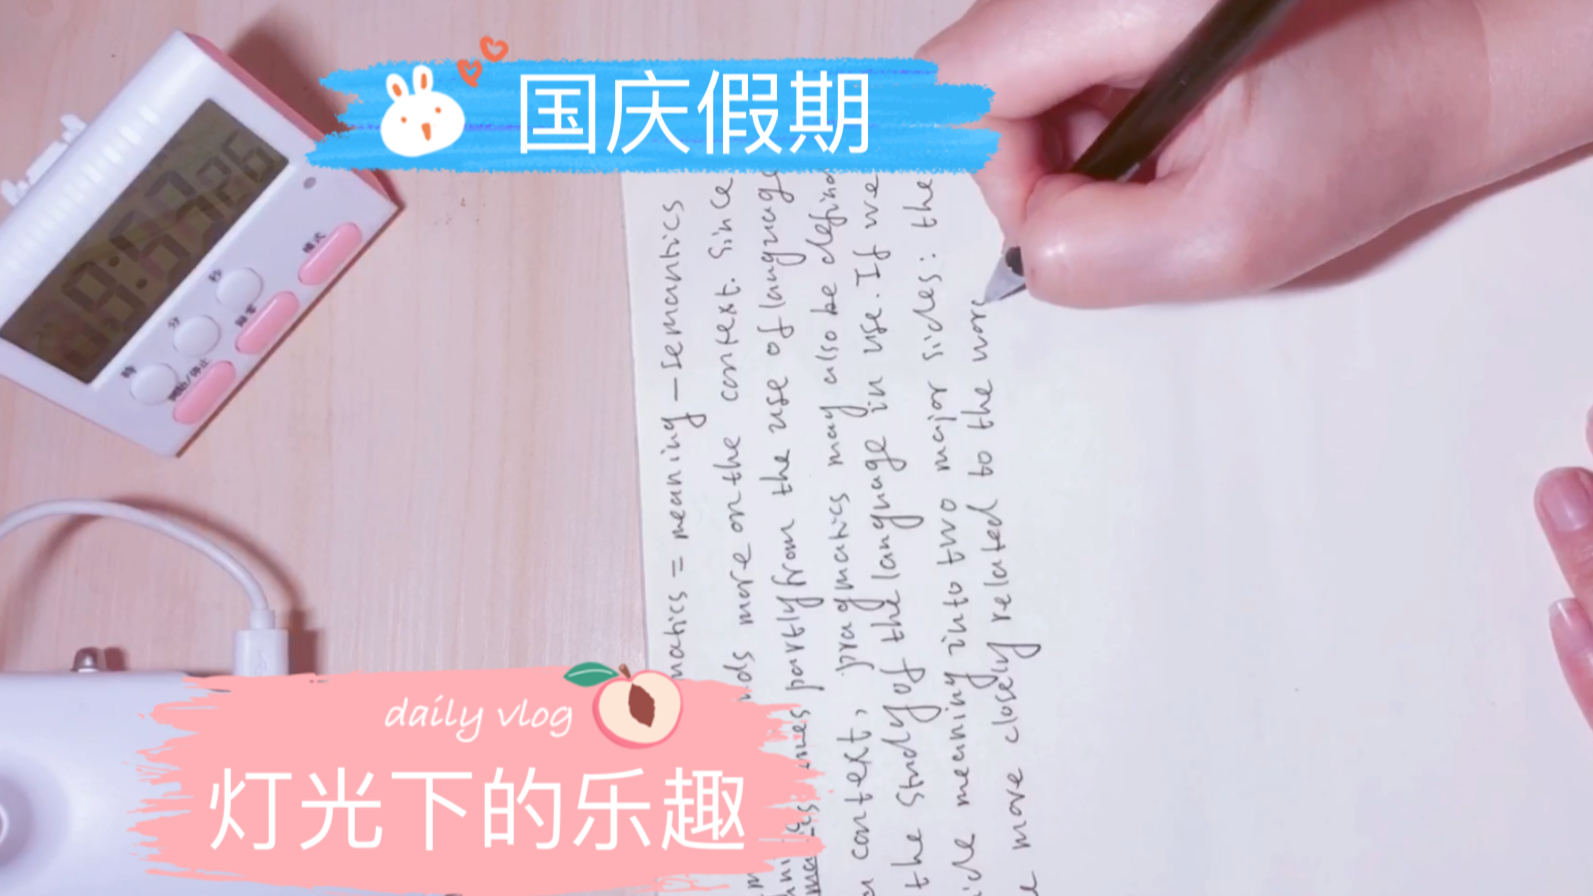 国庆假期
模式
秒
分
时
开始/停止
matics = meaning - semantics
more on the context. Since
partly from the use of language
context, pragmatics may also be defin
the study of the language in use. If we
meaning into two major sides: the
more closely related to the wor
daily vlog
灯光下的乐趣